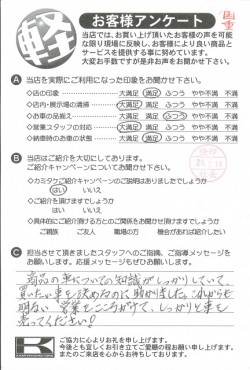 軽
お客様アンケート
当店では、お買い上げ頂いたお客様の声を可能
な限り現場に反映し、お客様により良い商品と
サービスを提供する事に努めています。
大変お手数ですが是非お声をお聞かせ下さい。
A 当店を実際にご利用になった印象をお聞かせ下さい。
◇店の印象 大満足 満足 ふつう やや不満 不満
◇店内・展示場の清掃 大満足 満足 ふつう やや不満 不満
◇お車の品揃え 大満足 満足 ふつう やや不満 不満
◇営業スタッフの対応 大満足 満足 ふつう やや不満 不満
◇納車時のお車の状態 大満足 満足 ふつう やや不満 不満
B 当店はご紹介を大切にしております。
ご紹介キャンペーンについてお聞かせ下さい。
◇カミタケご紹介キャンペーンのご説明はありましたでしょうか
はい いいえ
◇ご紹介を頂けますでしょうか
はい いいえ
◇具体的にご紹介頂ける方とのご関係をお聞かせ頂けますでしょうか
ご親族 ご友人 職場の方 機会があれば紹介したい
C 担当させて頂きましたスタッフへのご指摘、ご指導メッセージを
お願いします。応援メッセージもぜひお願いします。
商品の車についての知識がしっかりしていて、
買いたい車を決めるのに助かりました。これからも
明るい 営業をこころがけて、しっかりと車を
売ってください!
ご協力に心よりお礼を申し上げます。
今後とも宜しくお引立てご愛顧の程お願い申し上げます。
またのご来店を心からお待ちしております。